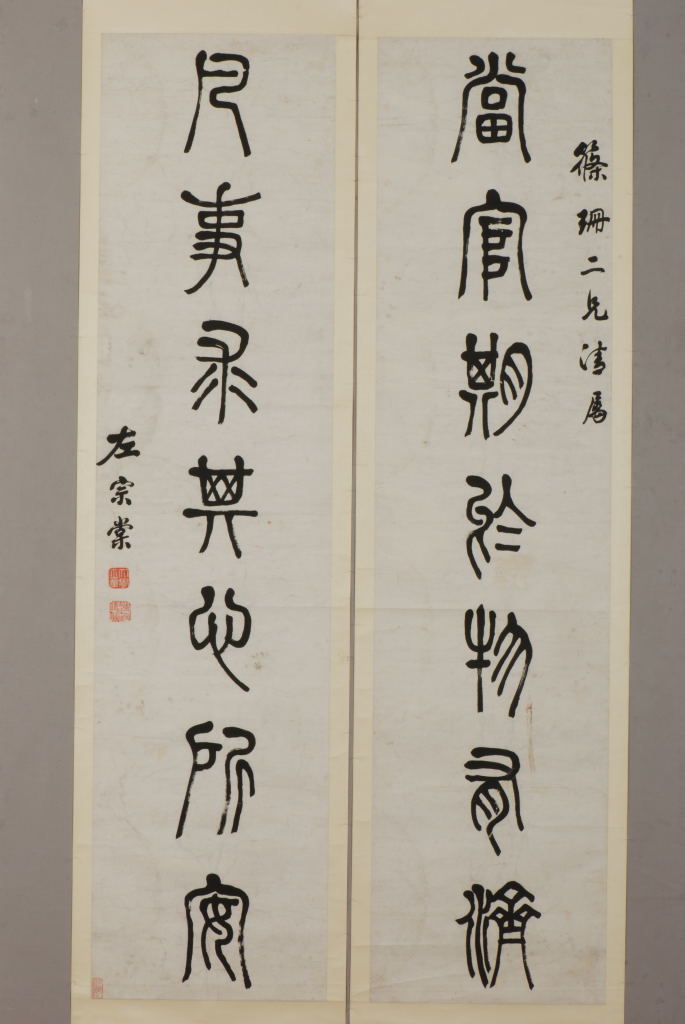 篠珊二兄清屬
當官期於物有濟
凡事求其心所安
左宗棠